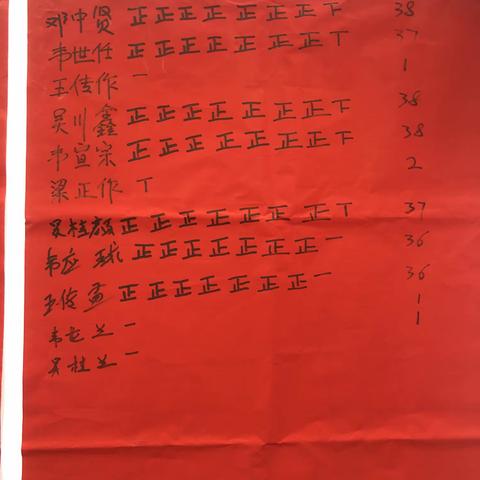 邓中贤 正正正正正正正下 38
韦世任 正正正正正正正丅 37
王传作 一 1
吴川鑫 正正正正正正正下 38
韦宣宗 正正正正正正正下 38
梁正作 丅 2
吴桂 正正正正正正正丅 37
韦应球 正正正正正正正一 36
王俊孟 正正正正正正正一 36
韦 兰 一 1
吴桂兰 一 1